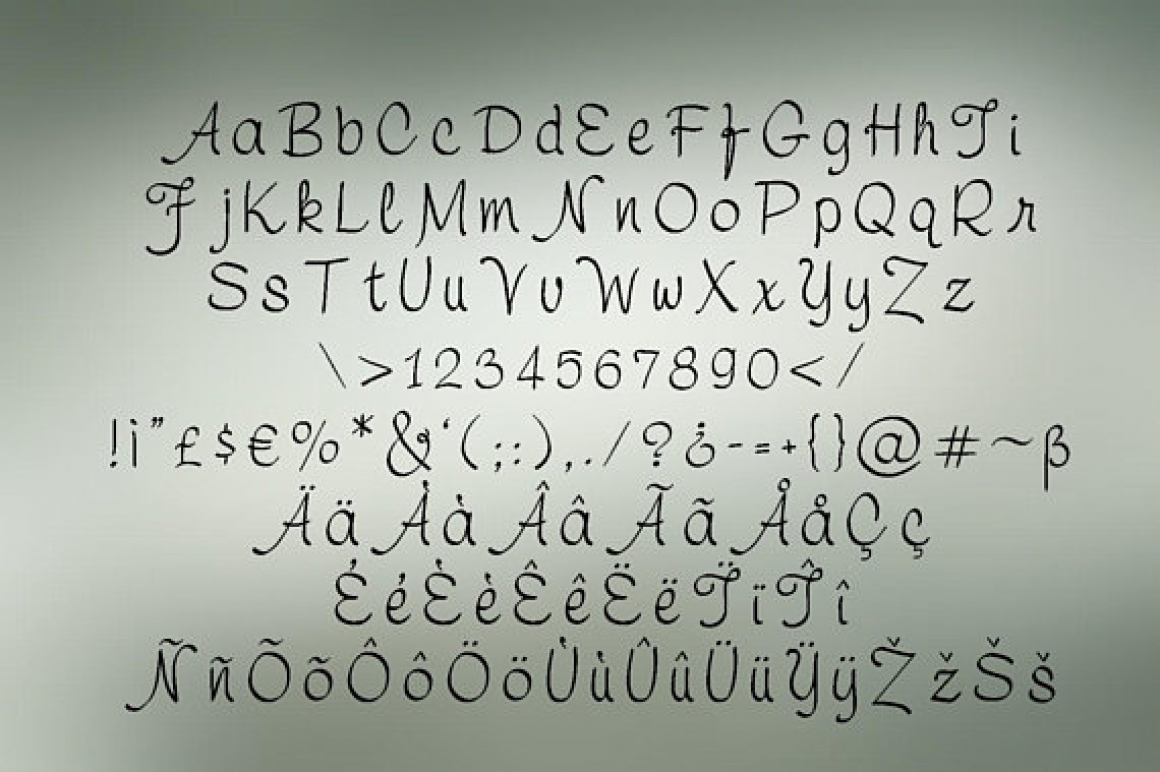 AaBbCcDdEeFfGgHhIi
JjKkLlMmNnOoPpQqRr
SsTtUuVvWwXxYyZz
\>1234567890</
!¡”£$€%*&‘(;:),./?¿-=+{}@#~β
ÄäÀàÂâÃãÅåÇç
ÉéÈèÊêËëÏïÎî
ÑñÕõÔôÖöÙùÛûÜüŸÿŽžŠš